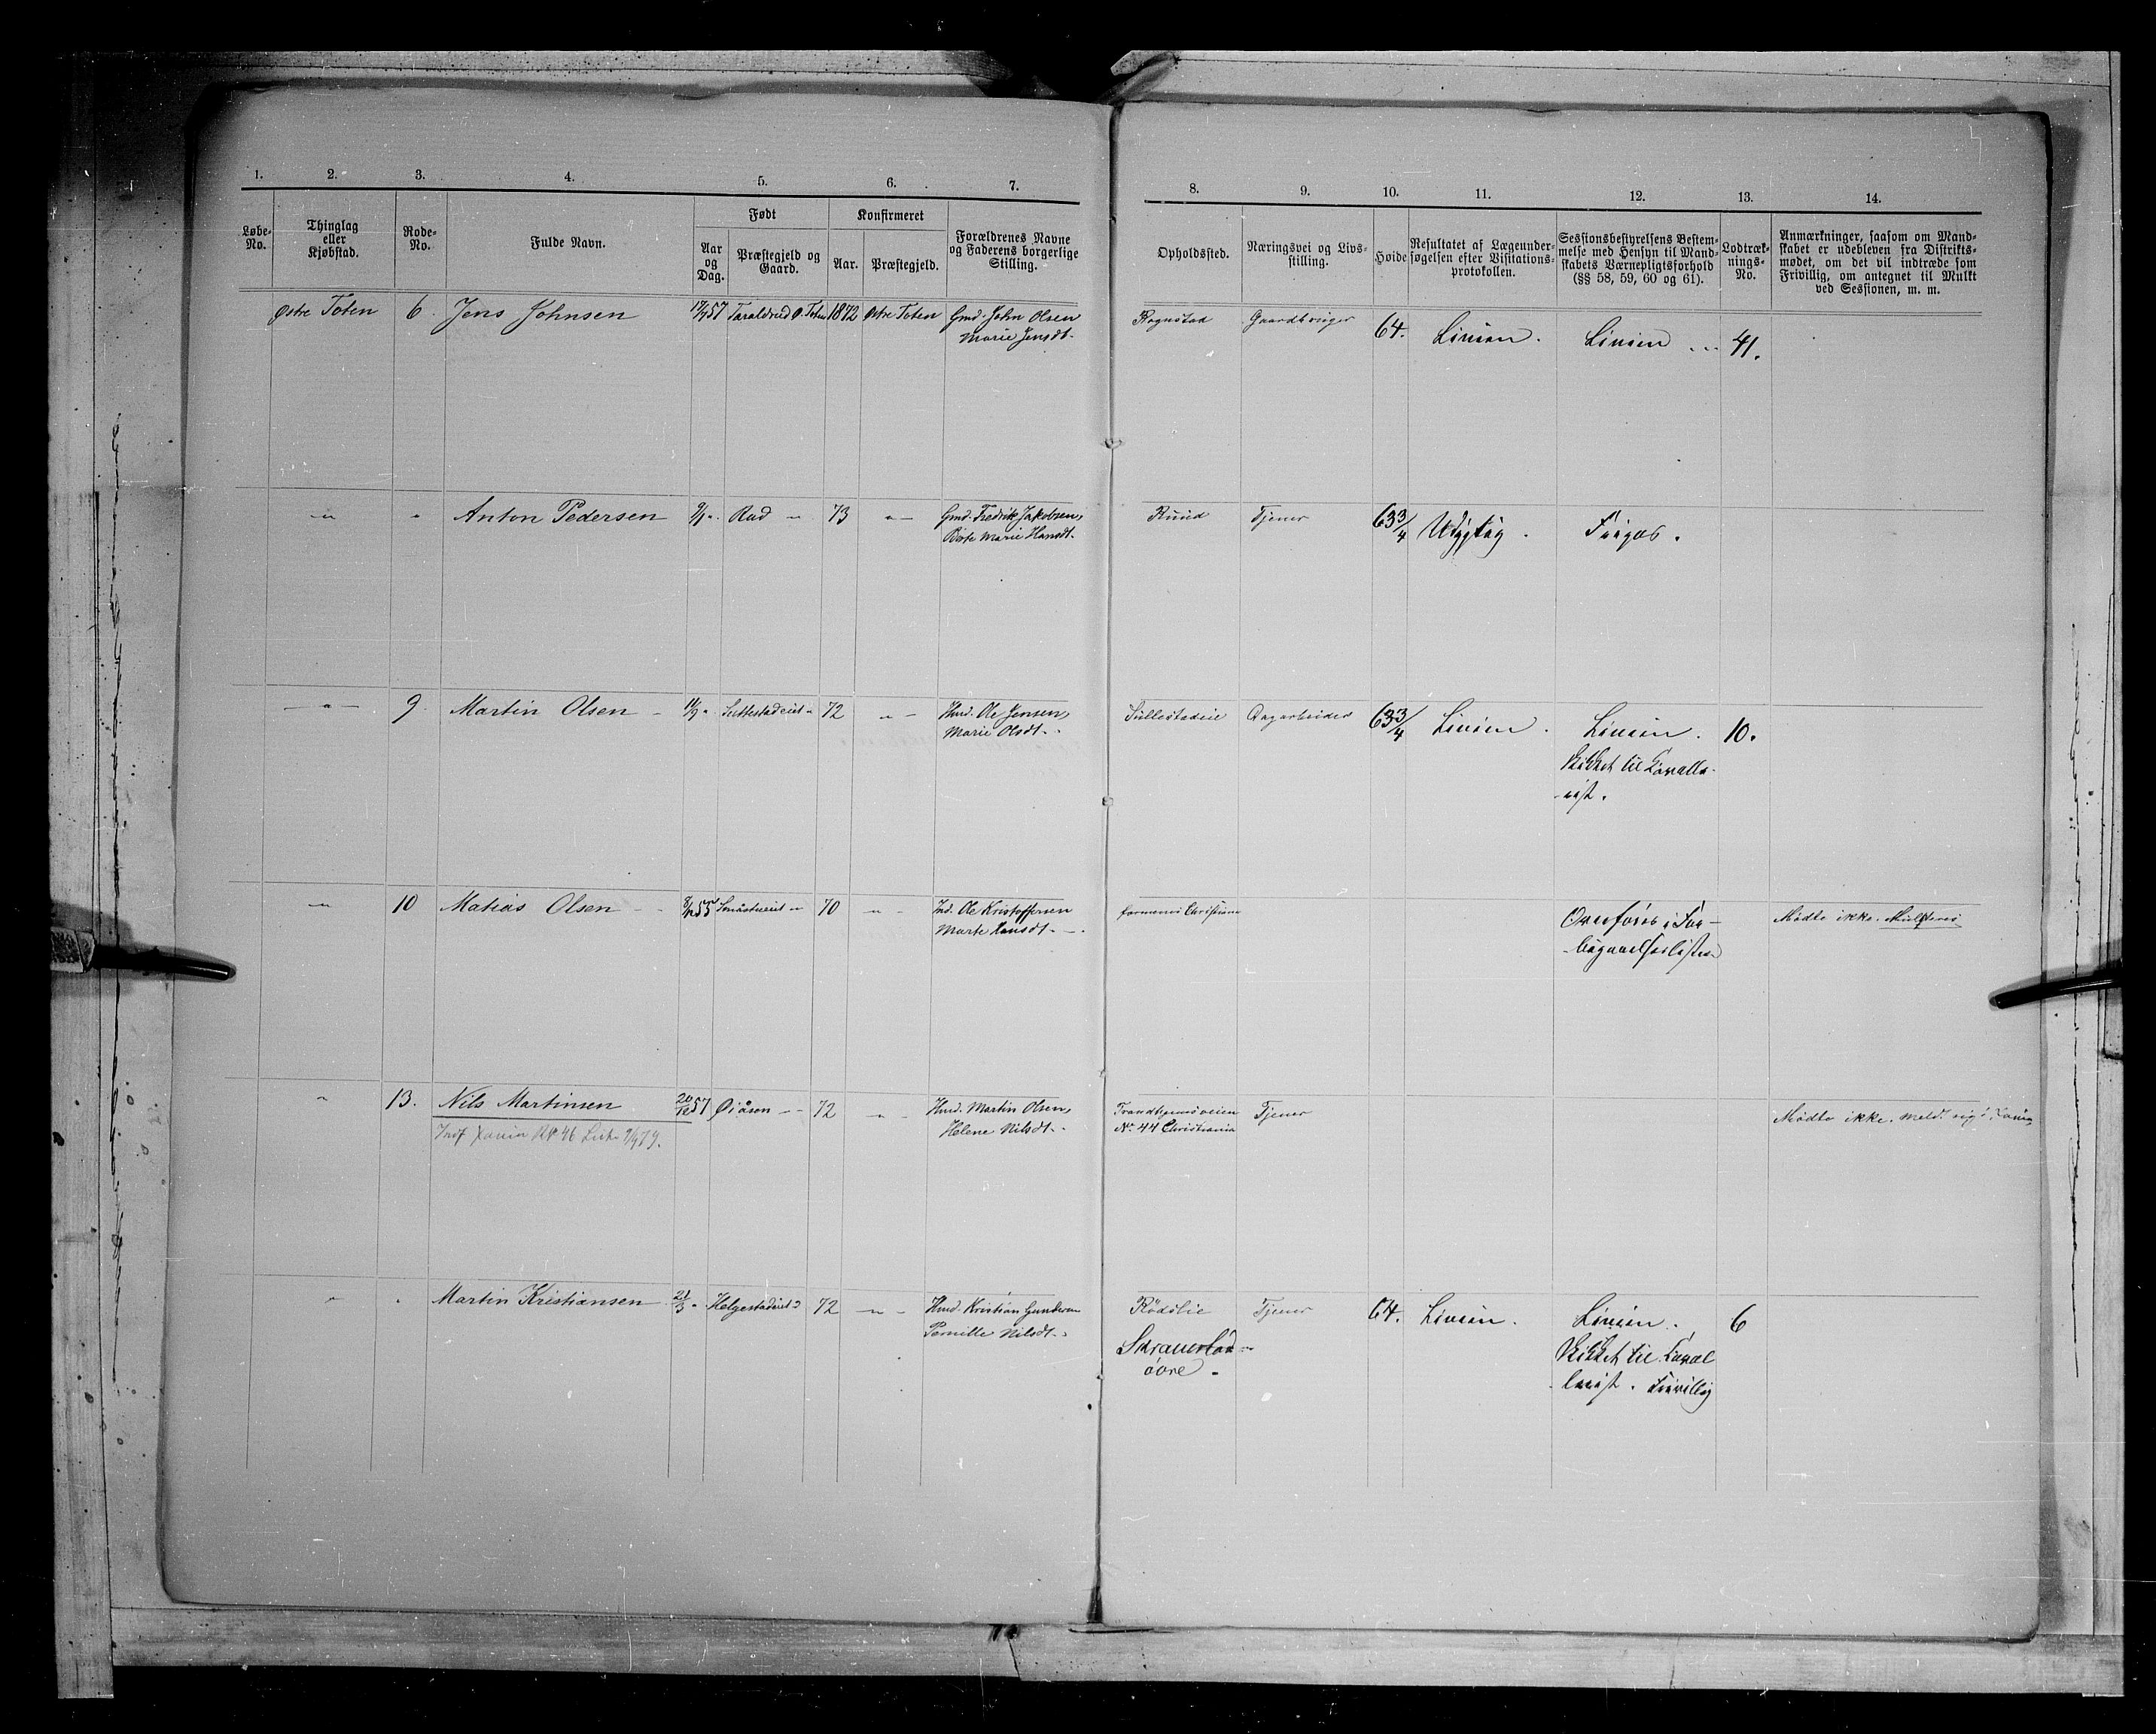 1. 2. 3. 4. 5. 6. 7. 8. 9. 10. 11. 12. 13. 14.
Løbe-No.
Thinglag eller Kjøbstad.
Rode-No.
Fulde Navn.
Født
Aar og Dag.
Præstegjeld og Gaard.
Konfirmeret
Aar.
Præstegjeld.
Forældrenes Navne og Faderens borgerlige Stilling.
Opholdssted.
Næringsvei og Livsstilling.
Høide
Resultatet af Lægeundersøgelsen efter Visitationsprotokollen.
Sessionsbestyrelsens Bestemmelse med Hensyn til Mandskabets Værnepligtsforhold (§§ 58, 59, 60 og 61).
Lodtræknings-No.
Anmærkninger, saasom om Mandskabet er udebleven fra Distriktsmødet, om det vil indtræde som Frivillig, om antegnet til Mulkt ved Sessionen, m. m.
Østre Toten 6 Jens Johnsen 57 Taraldrud Ø. Toten 1872 Østre Toten Gmd. John Olsen Rognstad 64. Linien. Linien 41.
Marie Jensdt.
Anton Pedersen Rud 73 Gmd. Fredrik Jakobsen, Ruud Tjener 63 3/4 Udygtig. 
Marie Hansdt.
9. Martin Olsen 11/9 Sillestadeiet 72 Husd. Ole Jensen, Sillestadeie Dagarbeider 63 3/4 Linien. Linien. 10.
Marie Olsdt.
Skikket til Kavalle-
rist.
10 Matias Olsen 55 70 Ind. Ole Kristoffersen Christiania Overføres i For- Mødte ikke. Mulkteres
Marte Hansdt.
13. Nils Martinsen 57 Øiåsen 72 Husd. Martin Olsen, Tjener Mødte ikke. Meldt sig i
Helene Nilsdt. No. 44 Christiania
Martin Kristiansen 21/3 Helgestadeiet 72 Husd. Kristian Gundersen Rødslie Tjener 64. Linien. Linien. 6
Pernille Nilsdt.
Skikket til Kaval
øvre.
lerist. Frivillig